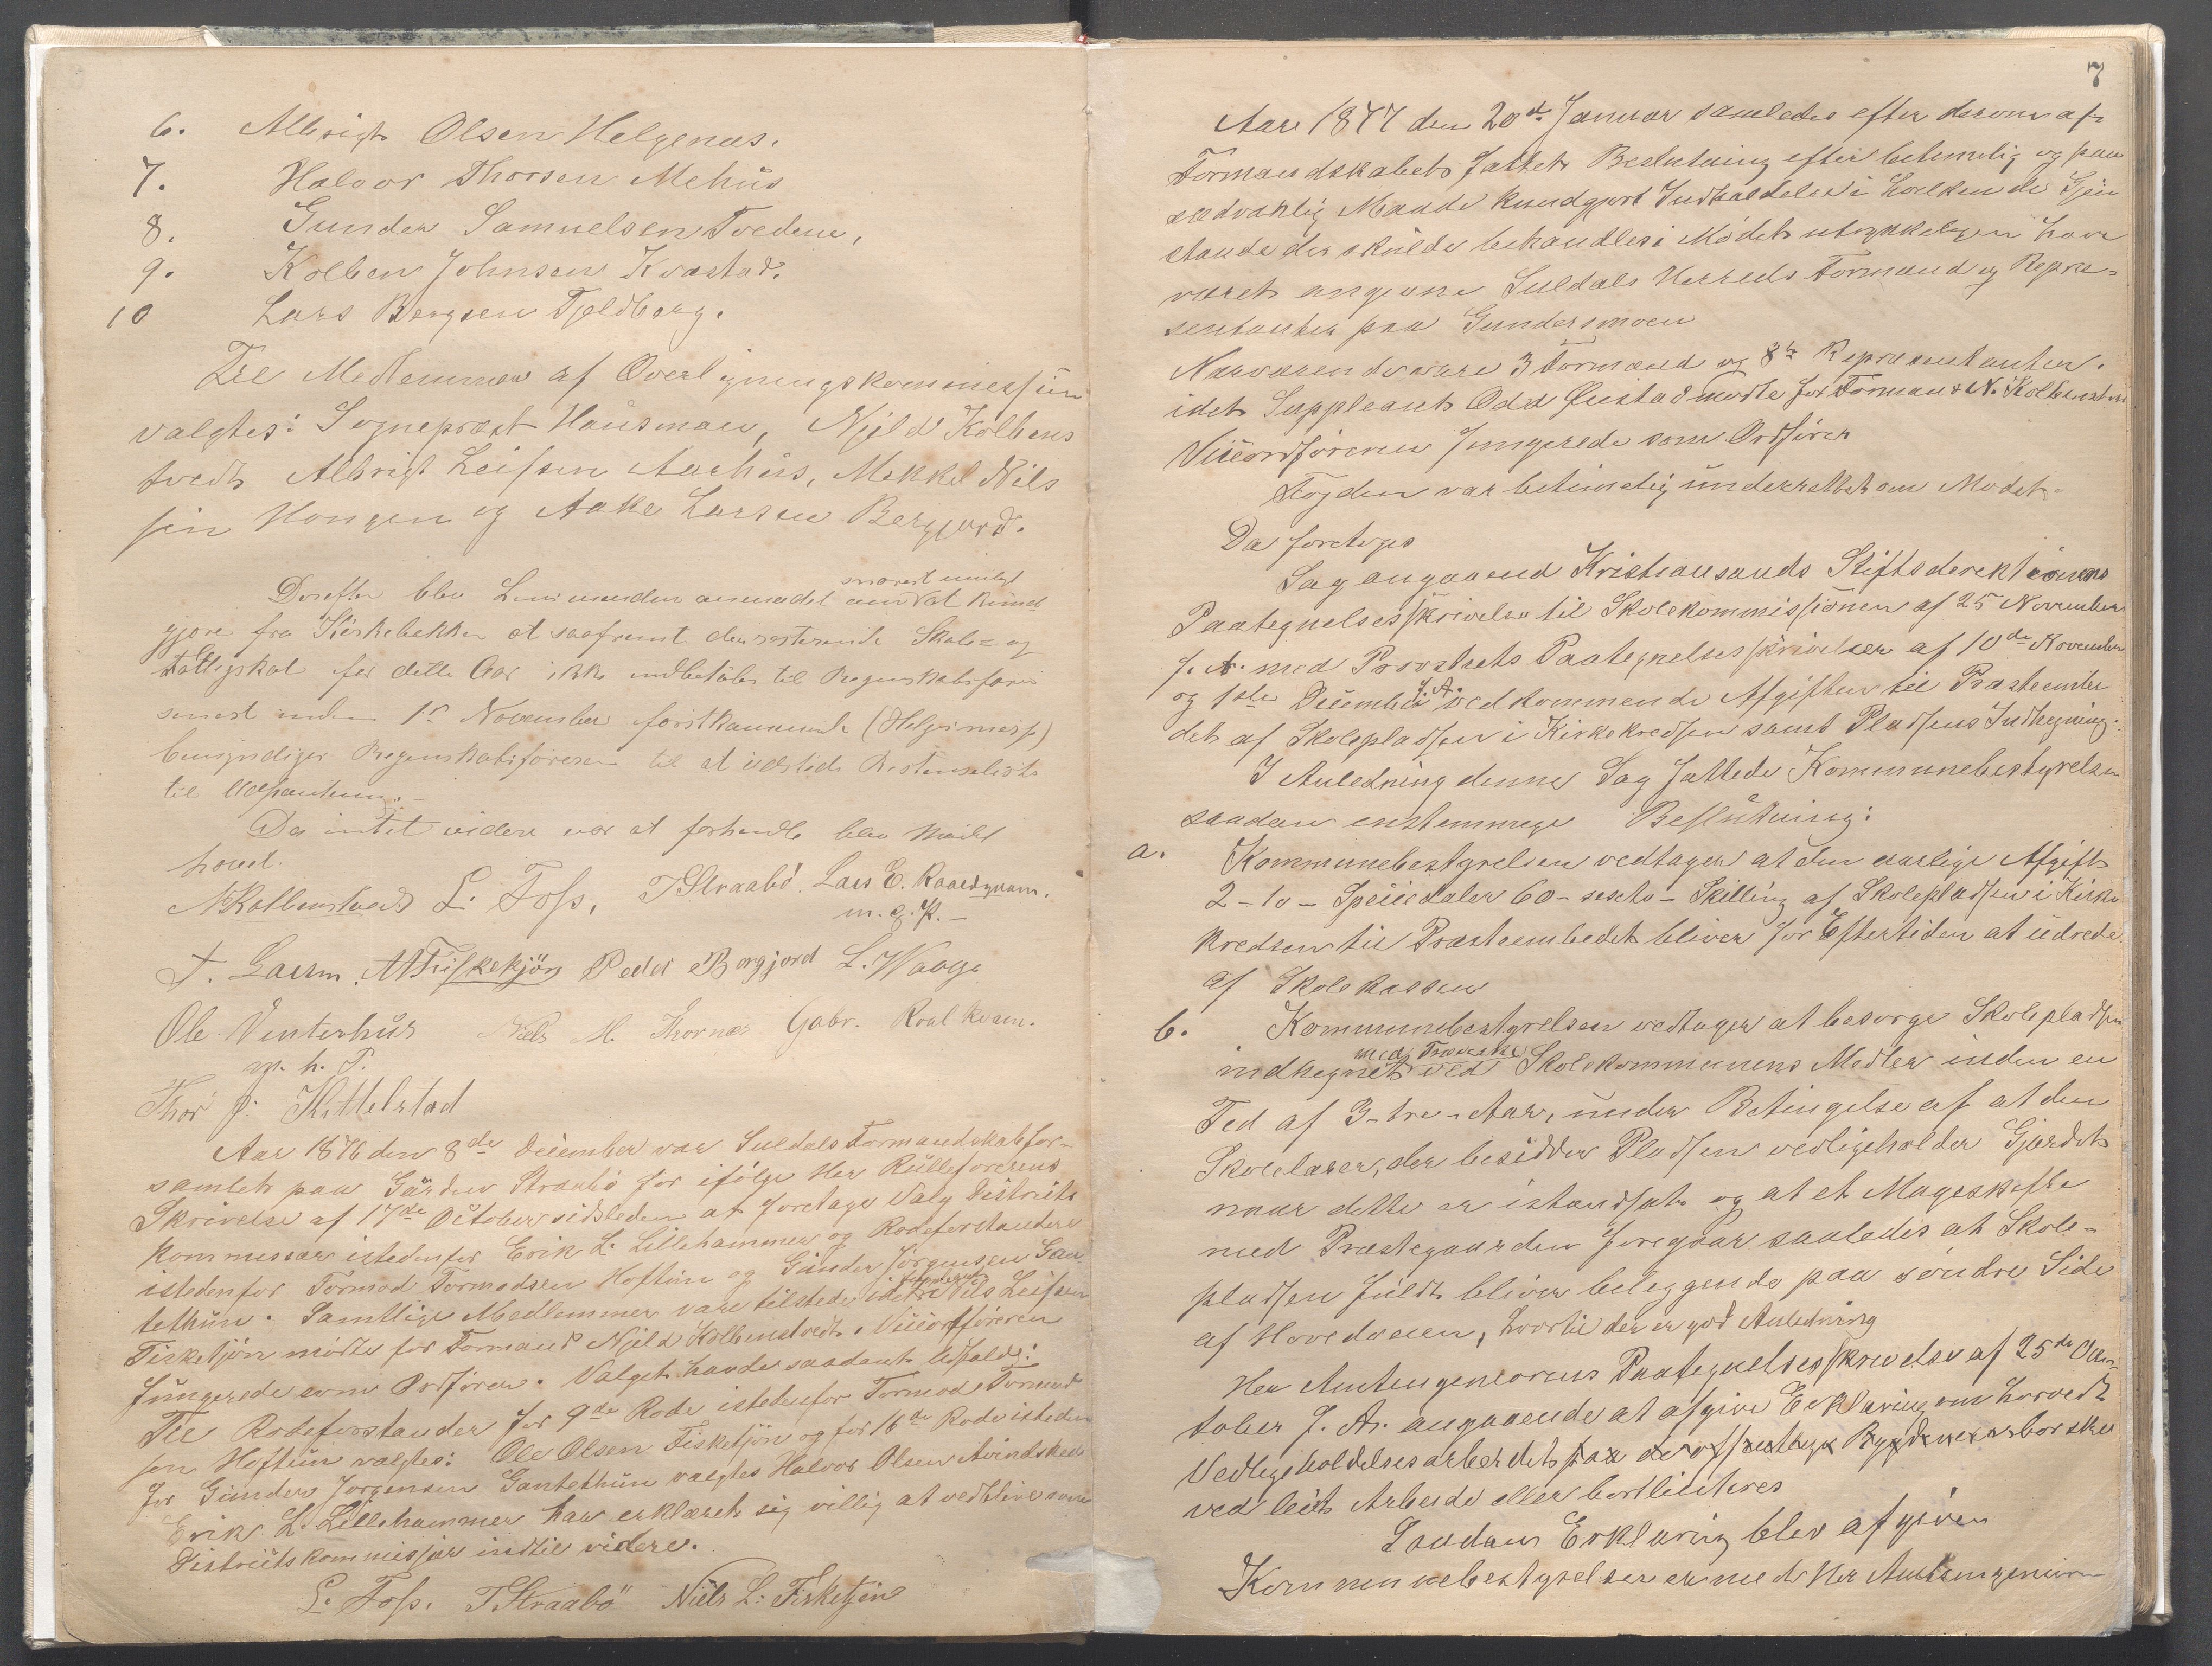 6. Albrigt Olsen Helgenæs.
7. Halvor Thorsen Mehus
8. Gunder Samuelsen Tvedene,
9. Kolben Johnsen Kvæstad.
10 Lars Bergsen Fjeldberg.
Til Medlemmer af Overligningskommissjon
valgtes: Sogneprest Hausman, Njeld Kolbens
tvedt Albrigt Leifsen Aarhus, Mikkel Nils
sen Hongen og Aake Larsen Bergjord.
Derefter blev Lensmanden anmodet om snarest muligt at kund
gjøre fra Kirkebakken at saafremt den resterende Skole= og
Fattigskat for dette Aar ikke indbetales til Regnskabsfører
senest inden 1ste November førstkommende (Helgimess)
bemyndiges Regnskabsføreren til at udstede Restanceliste
til Udpantning.-
Da intet videre var at forhandle blev Mødet
hævet.
N Kolbenstvedt L. Foss. T Straabö. Lars E. Roaldqvam.
m. p. P. -
T. Garm. N Fiskekjön Peder Bergjord L. Waage
Ole Vinterhus Niels M. Thornæs Gabr. Roalkvam.
m. h. P.
Thor J: Kittelstad
Aar 1876 den 8de December var Suldals Formandskab for-
samlet paa Gården Straabö for ifølge Her Rulleførerens
Skrivelse af 17de October sidstleden at foretage Valg Districts
kommissær istedenfor Erik L. Lillehammer og Rodeforstandere
istedenfor Tormod Tormodsen Hoftun og Gunder Jörgensen Gau
tethun. Samtlige Medlemmer vare tilstede idet Nils Leifsen
Fisketjön mödte for Formand Njeld Kolbenstvedt. Viceordföreren
fungerede som Ordfører. Valget havde saadant Udfald:
Til Rodeforstander for 9de Rode istedenfor Tormod Tormod
sen Hoftun valgtes: Ole Olsen Fisketjön og for 16de Rode isteden
for Gunder Jørgensen Gautethun valgtes Halvor Olsen Avindskeii
Erik L. Lillehammer har erklæret sig villig at vedblive som
Districtskommissjær indtil videre.
L. Foss. T Straabö Niels L. Fisketjön
7
Aar 1877 den 20de Januar samledes efter derom af
Formandskabet fattet Beslutning efter betimelig og paa
sædvanlig Maade kundgjort Indkaldelse i hvilken de Gjen
stande der skulde behandles i Mødet udtrykkeligen have
været angivne Suldals Herreds Formænd og Repræ=
sentanter paa Gundersmoen
Nærværende vare 3 Formænd og 8te Repræsentanter.
idet Suppleant Odd Qvistad mødte for Formand N. Kolbenstv
Viceordføreren fungerede som Ordfører
Fogden var betimelig underrettet om Mødet.
Da foretoges
Sag angaaend Kristiansands Stiftsdirektionens
Paategnelsesskrivelse til Skolekommissionen af 25 November
f. A. med Provstiets Paategnelsesskrivelser af 10de November
og 1ste December f. A. vedkommende Afgiften til Præsteembe
det af Skolepladsen i Kirkekredsen samt Pladsens Indhegning.
I Anledning denne Sag fattede Kommunebestyrelsen
saadan enstemmige Beslutning:
a. Kommunebestyrelsen vedtager at den aarlige Afgift
2 - to - Speciedaler 60 - sexti - Skilling af Skolepladsen i Kirke
kredsen til Præsteembedet bliver for Eftertiden at udrede
af Skolekassen
b. Kommunebestyrelsen vedtager at besørge Skolepladsen
indhegnet med Træværk ved Skolekommunens Midler inden en
Tid af 3 - tre - Aar, under Betingelse af at den
Skolelærer, der besidder Pladsen vedligeholder Gjærdet
naar dette er istandsat og at et Mageskifte
med Præstegaarden foregaar saaledes at Skole=
pladsen fuldt bliver beliggende paa søndre Side
af Hovedveien, hvortil der er god Anledning
Her Amtingeniørens Paategnelsesskrivelse af 25de Oc
tober f. A. angaaende at afgive Erklæring om hvorvidt
Vedligeholdelsesarbeidet paa de offentlige Bygdeveie bør ske
ved leiet Arbeide eller bortliciteres
Saadan Erklæring blev afgiven
Kommunebestyrelsen er med Her Amtsingeniøren